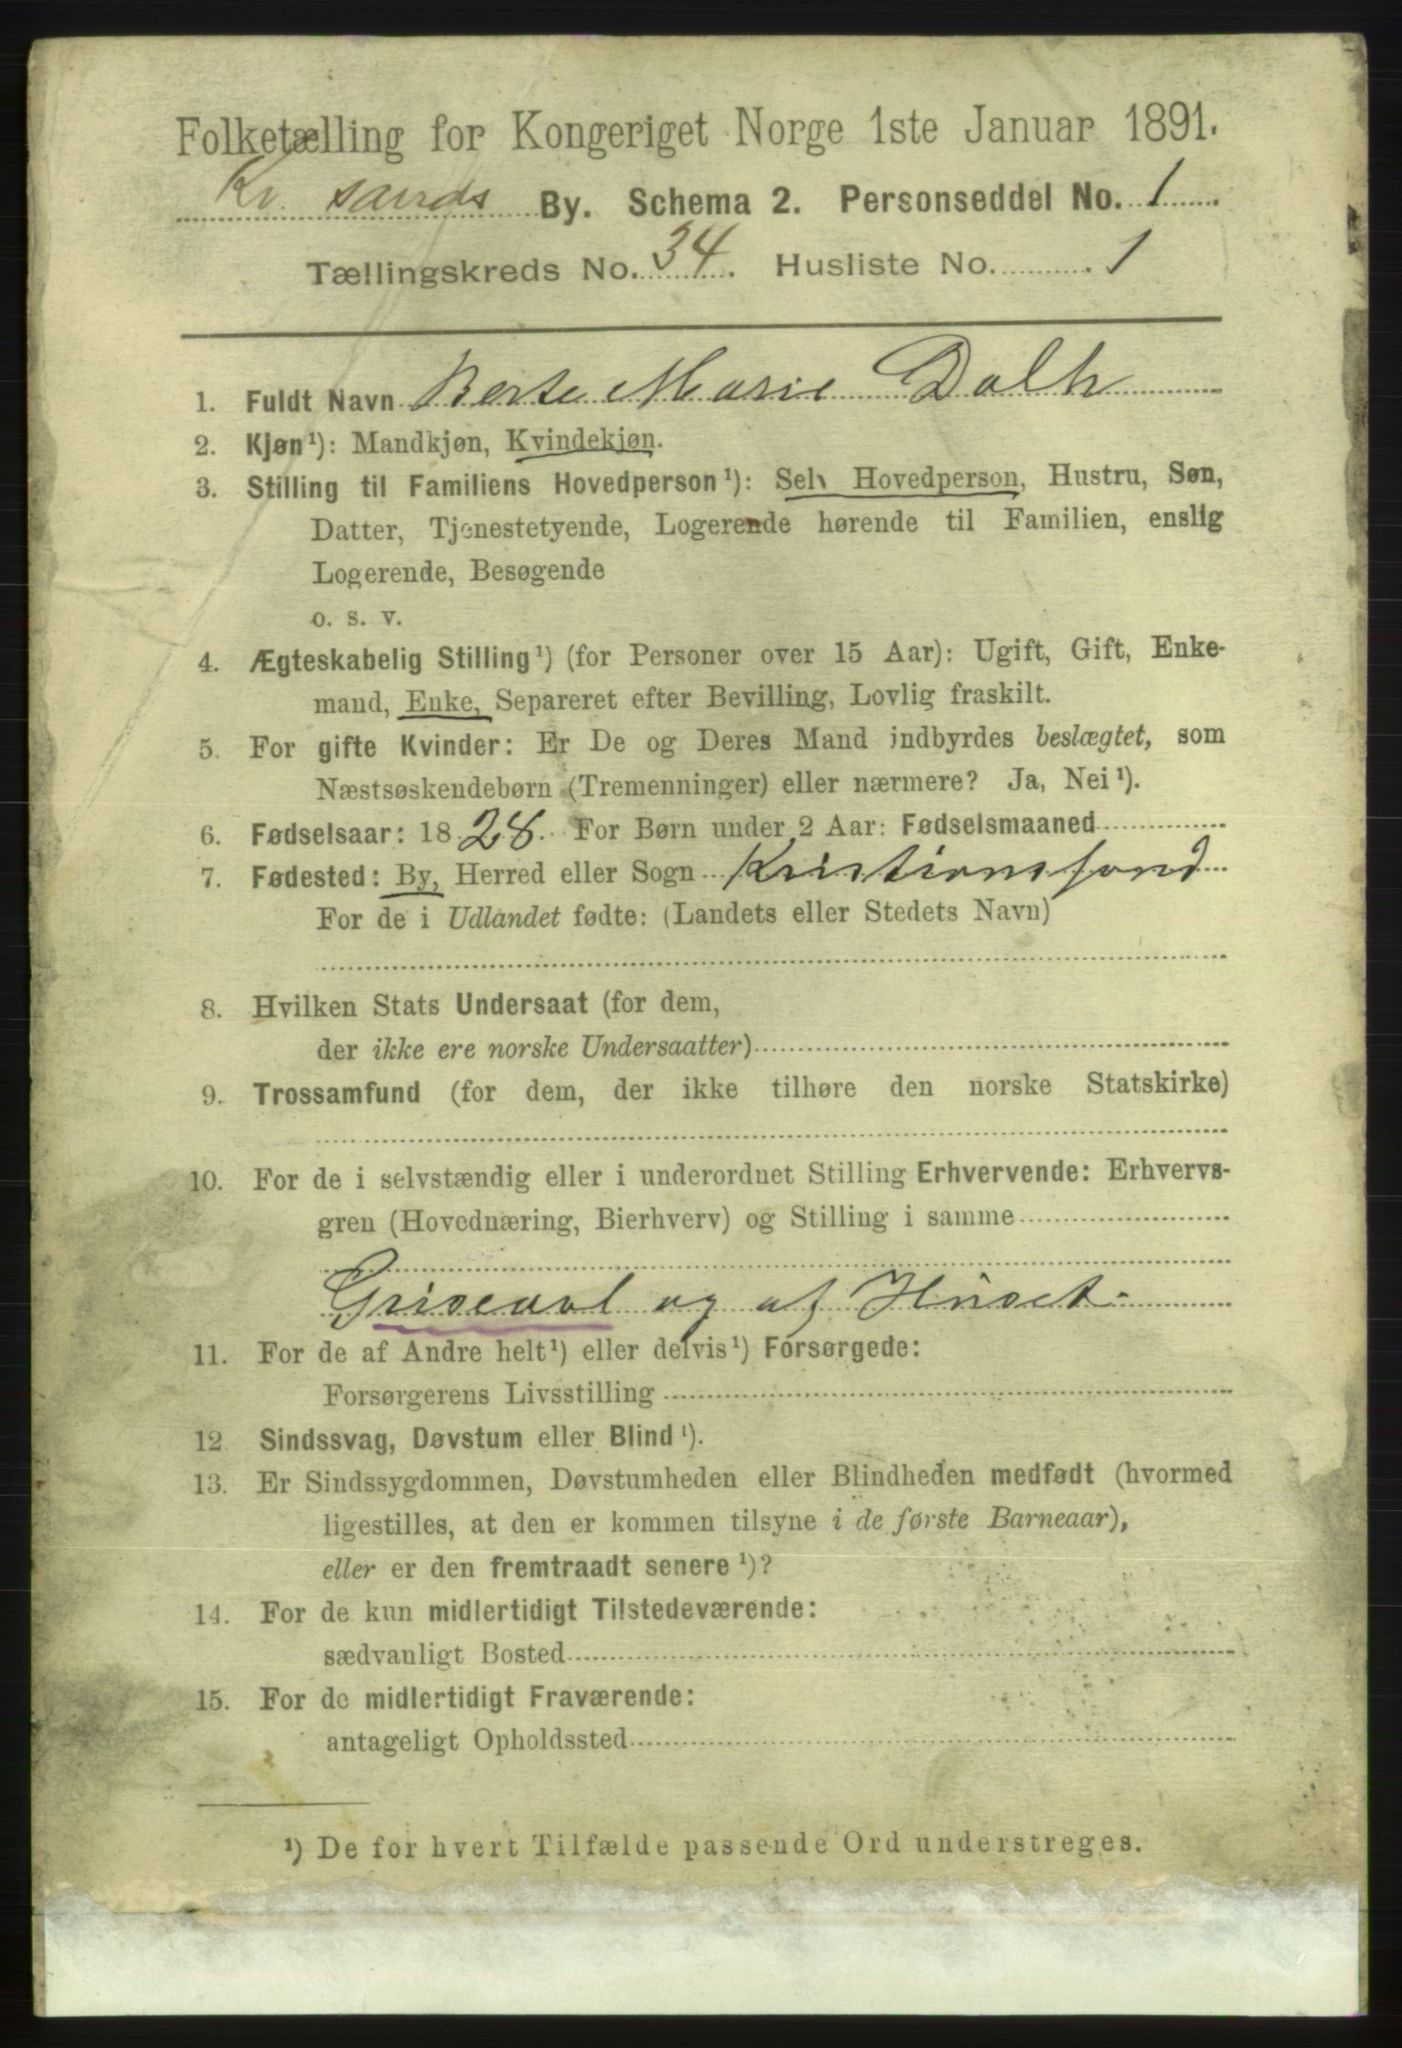 Folketælling for Kongeriget Norge 1ste Januar 1891.
Kr. sands By. Schema 2. Personseddel No. 1.
Tællingskreds No. 34. Husliste No. 1
1. Fuldt Navn Berte Marie Dalh
2. Kjøn¹): Mandkjøn, Kvindekjøn.
3. Stilling til Familiens Hovedperson¹): Selv Hovedperson, Hustru, Søn,
Datter, Tjenestetyende, Logerende hørende til Familien, enslig
Logerende, Besøgende
o. s. v.
4. Ægteskabelig Stilling¹) (for Personer over 15 Aar): Ugift, Gift, Enke-
mand, Enke, Separeret efter Bevilling, Lovlig fraskilt.
5. For gifte Kvinder: Er De og Deres Mand indbyrdes beslægtet, som
Næstsøskendebørn (Tremenninger) eller nærmere? Ja, Nei¹).
6. Fødselsaar: 1828. For Børn under 2 Aar: Fødselsmaaned
7. Fødested: By, Herred eller Sogn Kristiansand
For de i Udlandet fødte: (Landets eller Stedets Navn)
8. Hvilken Stats Undersaat (for dem,
der ikke ere norske Undersaatter)
9. Trossamfund (for dem, der ikke tilhøre den norske Statskirke)
10. For de i selvstændig eller i underordnet Stilling Erhvervende: Erhvervs-
gren (Hovednæring, Bierhverv) og Stilling i samme
Griseavl og af Huset.
11. For de af Andre helt¹) eller delvis¹) Forsørgede:
Forsørgerens Livsstilling
12 Sindssvag, Døvstum eller Blind¹).
13. Er Sindssygdommen, Døvstumheden eller Blindheden medfødt (hvormed
ligestilles, at den er kommen tilsyne i de første Barneaar),
eller er den fremtraadt senere¹)?
14. For de kun midlertidigt Tilstedeværende:
sædvanligt Bosted
15. For de midlertidigt Fraværende:
antageligt Opholdssted
¹) De for hvert Tilfælde passende Ord understreges.